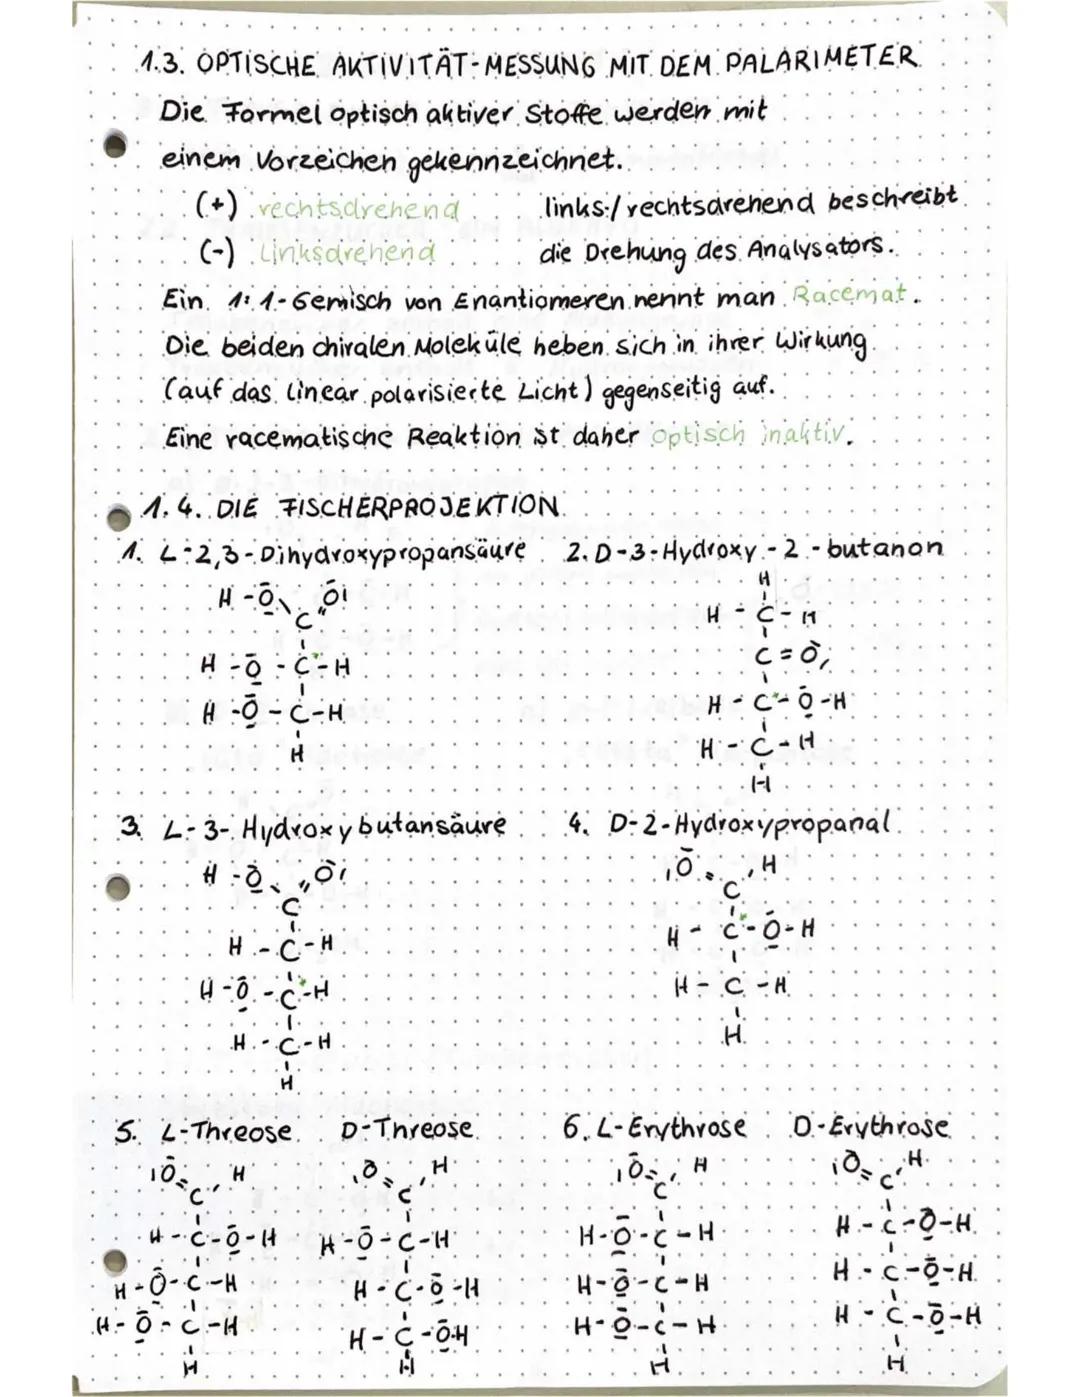 1.3. OPTISCHE AKTIVITÄT-MESSUNG MIT DEM PALARIMETER
Die Formel optisch aktiver Stoffe werden mit
einem Vorzeichen gekennzeichnet.
(+) rechtsdrehend links-/rechtsdrehend beschreibt
(-) Linksdrehend die Drehung des Analysators.
Ein 1:1-Gemisch von Enantiomeren nennt man Racemat.
Die beiden chiralen Moleküle heben sich in ihrer Wirkung
(auf das linear polarisierte Licht) gegenseitig auf.
Eine racematische Reaktion ist daher optisch inaktiv.
1.4. DIE FISCHERPROJEKTION
1. L-2,3-Dihydroxypropansäure 2. D-3-Hydroxy-2-butanon
H
H-O O H-C-H
C C=O
H-O-C*-H H-C*-O-H
H-O-C-H H-C-H
H H
3. L-3-Hydroxybutansäure 4. D-2-Hydroxypropanal
H-O O O H
C C
H-C-H H-C*-O-H
H-O-C*-H H-C-H
H-C-H H
H
5. L-Threose D-Threose 6. L-Erythrose D-Erythrose
O H O H O H O H
C C C C
H-C-O-H H-O-C-H H-O-C-H H-C-O-H
H-O-C-H H-C-O-H H-O-C-H H-C-O-H
H-O-C-H H-C-O-H H-O-C-H H-C-O-H
H H H H